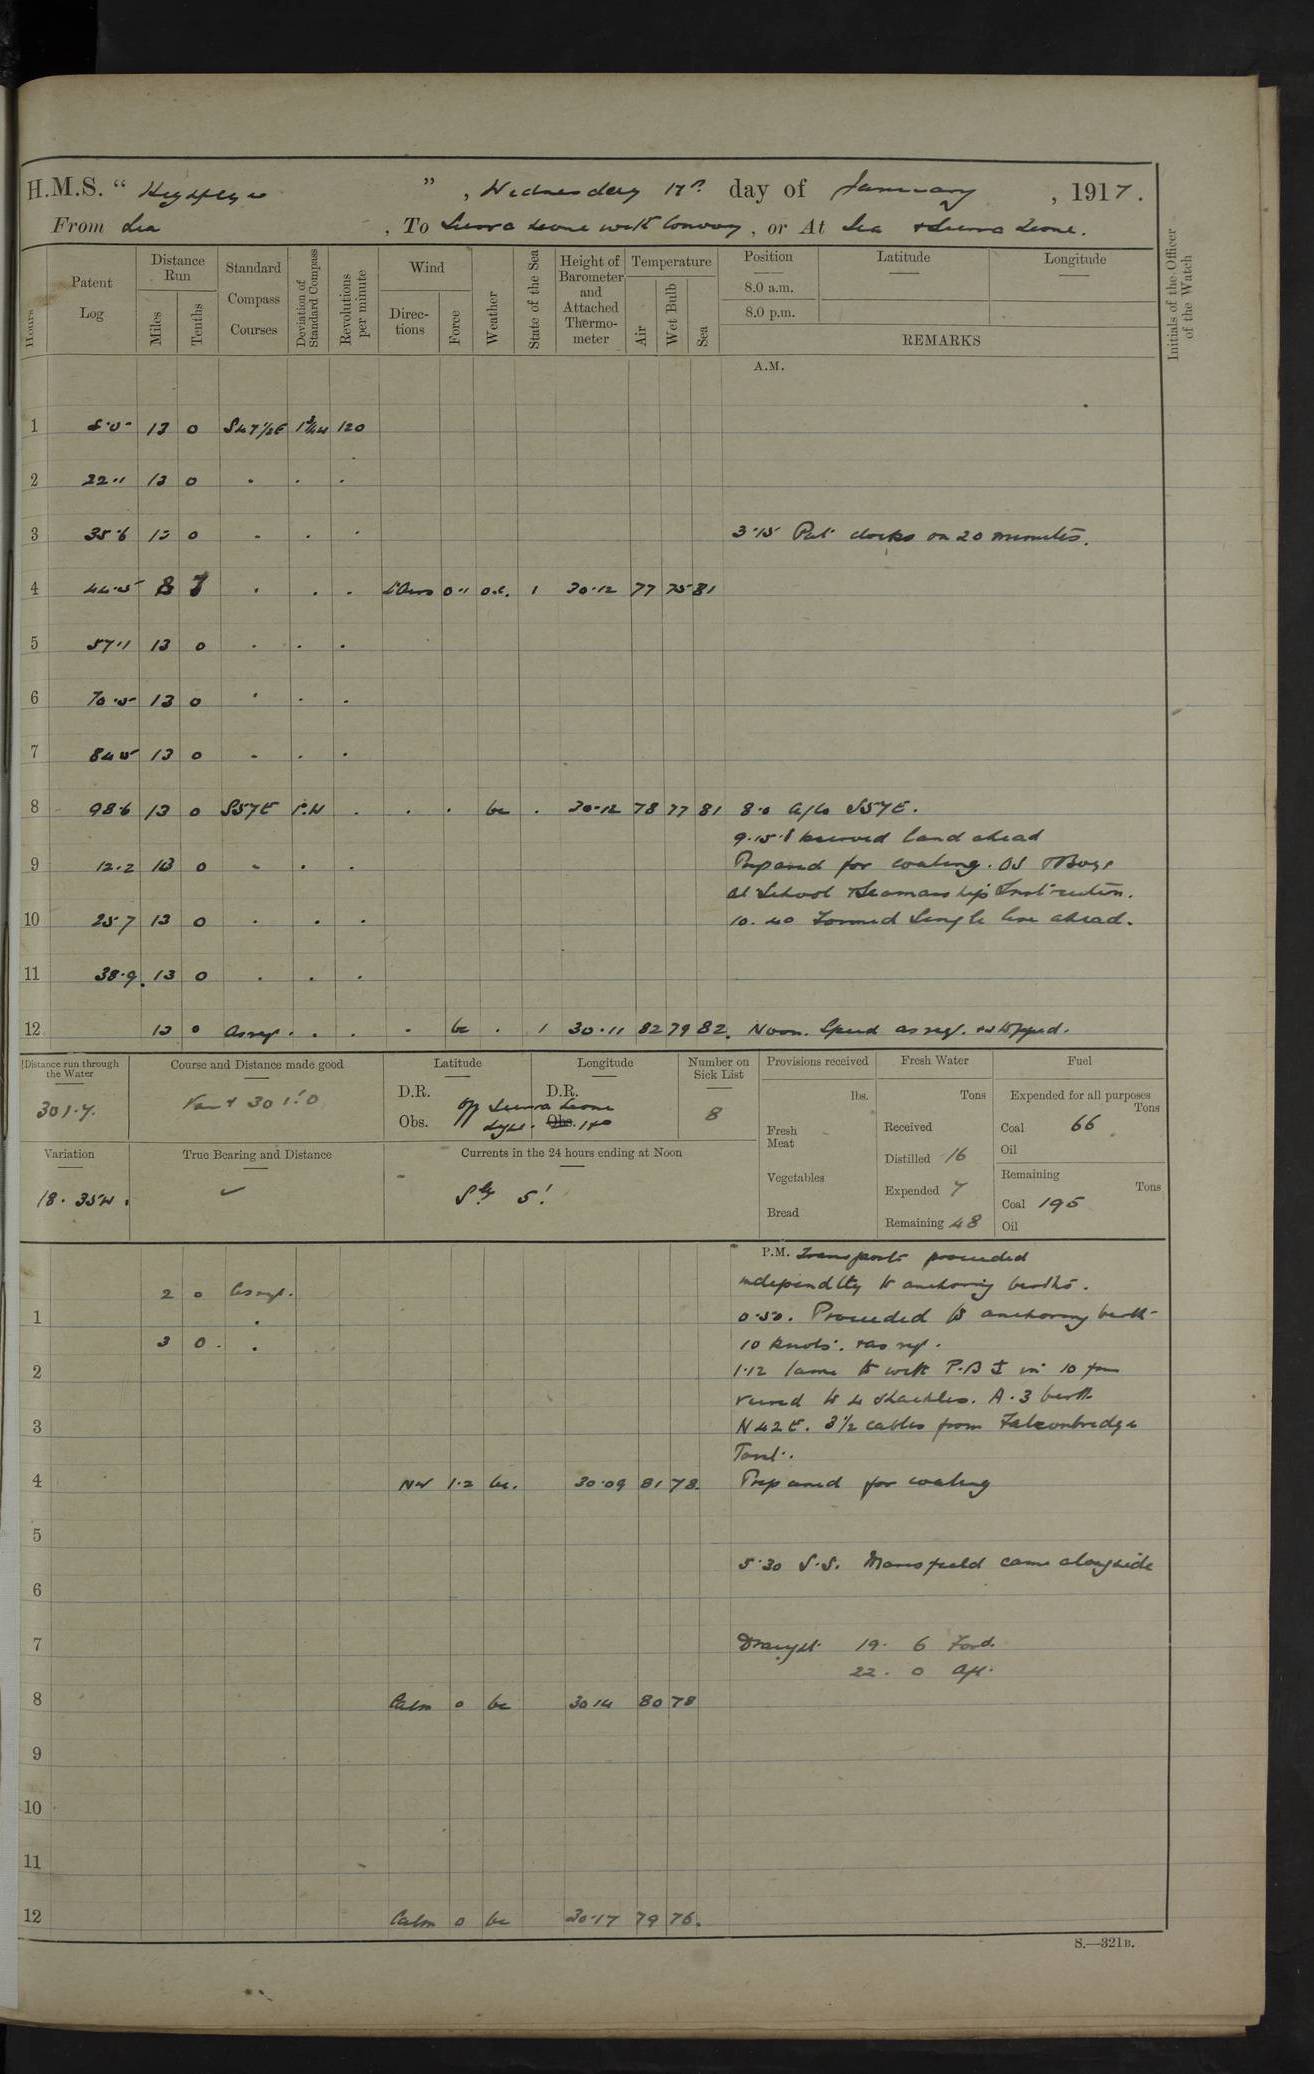 H.M.S. " Highflyer ", Wednesday 17th day of January, 1917.
From Sea, To Sierra Leone with Convoy, or At Sea & Sierra Leone.
Hours
Patent Log
Distance Run
Miles
Tenths
Standard Compass Courses
Deviation of Standard Compass
Revolutions per minute
Wind
Directions
Force
Weather
State of the Sea
Height of Barometer and Attached Thermometer
Temperature
Air
Wet Bulb
Sea
Position
8.0 a.m.
8.0 p.m.
Latitude
Longitude
REMARKS
Initials of the Officer of the Watch
A.M.
1 13 0 S47½E 120
2 22.11 13 0
3 35.6 13 0 3.15 Put clocks on 20 minutes.
4 44.5 8 7 1 30.12 77 75 81
5 57.11 13 0
6 70.5 13 0
7 84.5 13 0
8 98.6 13 0 S57E 1°.W bc 30.12 78 77 81 8.0 A/Co S57E.
9.15. Observed land ahead
9 12.2 13 0 Prepared for coaling. OS & Boys
at School & Seamanship Instruction.
10 25.7 13 0 10.40 Formed Single line ahead.
11 38.9 13 0
12 13 0 As req. bc 1 30.11 82 79 82. Noon. Speed as req. & stopped.
Distance run through the Water
301.7.
Course and Distance made good
301'.0
Latitude
D.R.
Obs.
Longitude
D.R.
Obs.
Off Sierra Leone
Number on Sick List
8
Provisions received
lbs.
Fresh Meat
Vegetables
Bread
Fresh Water
Tons
Received
Distilled 16
Expended 7
Remaining 48
Fuel
Expended for all purposes
Tons
Coal 66
Oil
Remaining
Tons
Coal 195
Oil
Variation
18.35W.
True Bearing and Distance
Currents in the 24 hours ending at Noon
Sly 5'.
P.M. Transports proceeded
independtly to anchoring berths.
2 0 As req.
1 0.50. Proceeded to anchoring berth
3 0 10 knots. & as req.
2 1.12 Came to with P.B.A. in 10 fms
veered to 4 shackles. A.3 berth
3 N42E. 3½ cables from Falconbridge
Point.
4 NW 1.2 bc. 30.09 81 78. Prepared for coaling
5
5.30 S.S. Mansfield came alongside
6
7 Draught 19. 6 Ford.
22. 0 Aft.
8 Calm 0 bc 30.14 80 78
9
10
11
12 Calm 0 bc 30.17 79 76.
S.—321B.